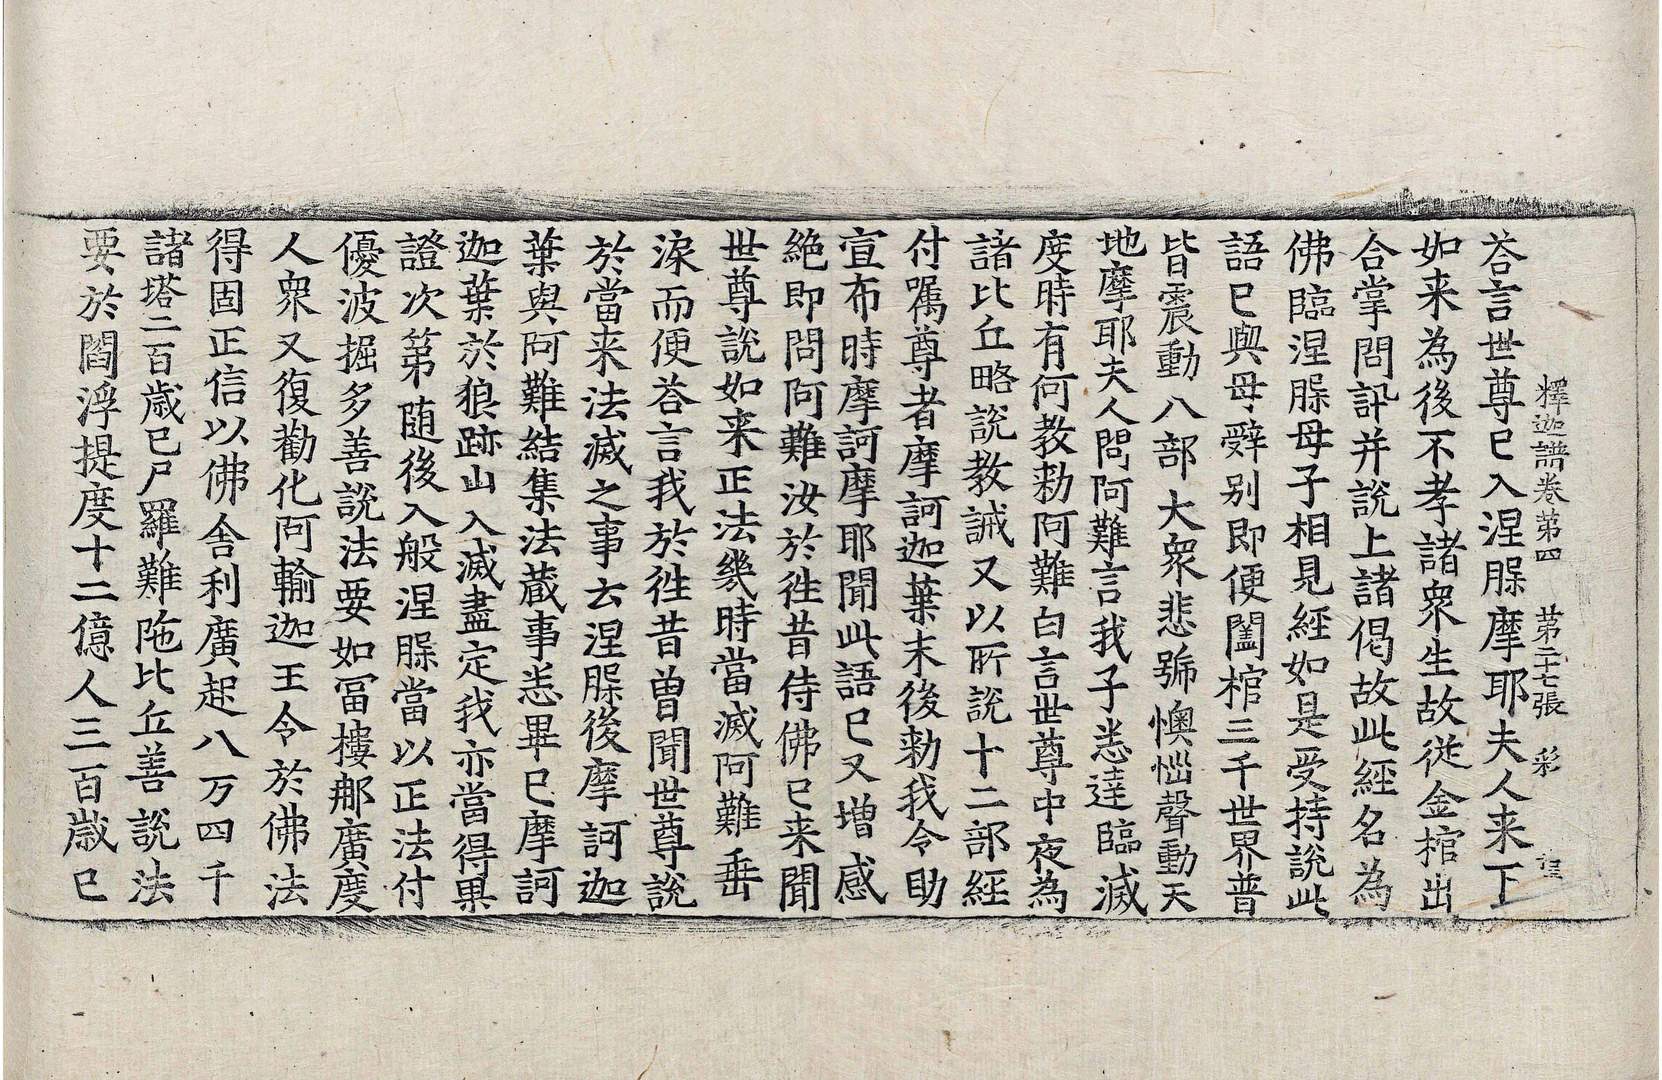 釋迦譜卷第四　第二十七張　彩
荅言世尊已入涅槃摩耶夫人来下
如来為後不孝諸衆生故從金棺出
合掌問訊并説上諸偈故此經名為
佛臨涅槃母子相見經如是受持説此
語已與母辤别即便闔棺三千世界普
皆震動八部大衆悲號懊惱聲動天
地摩耶夫人問阿難言我子恙達臨滅
度時有何教勑阿難白言世尊中夜為
諸比丘略説教誡又以所説十二部經
付囑尊者摩訶迦葉末後勑我令助
宣布時摩訶摩耶聞此語已又增感
絶即問阿難汝於徃昔侍佛已来聞
世尊説如来正法幾時當滅阿難垂
淚而便荅言我於徃昔曽聞世尊説
於當来法滅之事云涅槃後摩訶迦
葉與阿難結集法蔵事恙畢已摩訶
迦葉於狼跡山入滅盡定我亦當得果
證次第随後入般涅槃當以正法付
優波掘多善説法要如冨樓那廣度
人衆又復勸化阿輸迦王令於佛法
得固正信以佛舎利廣起八万四千
諸塔二百歳已尸羅難陁比丘善説法
要於閻浮提度十二億人三百歳已